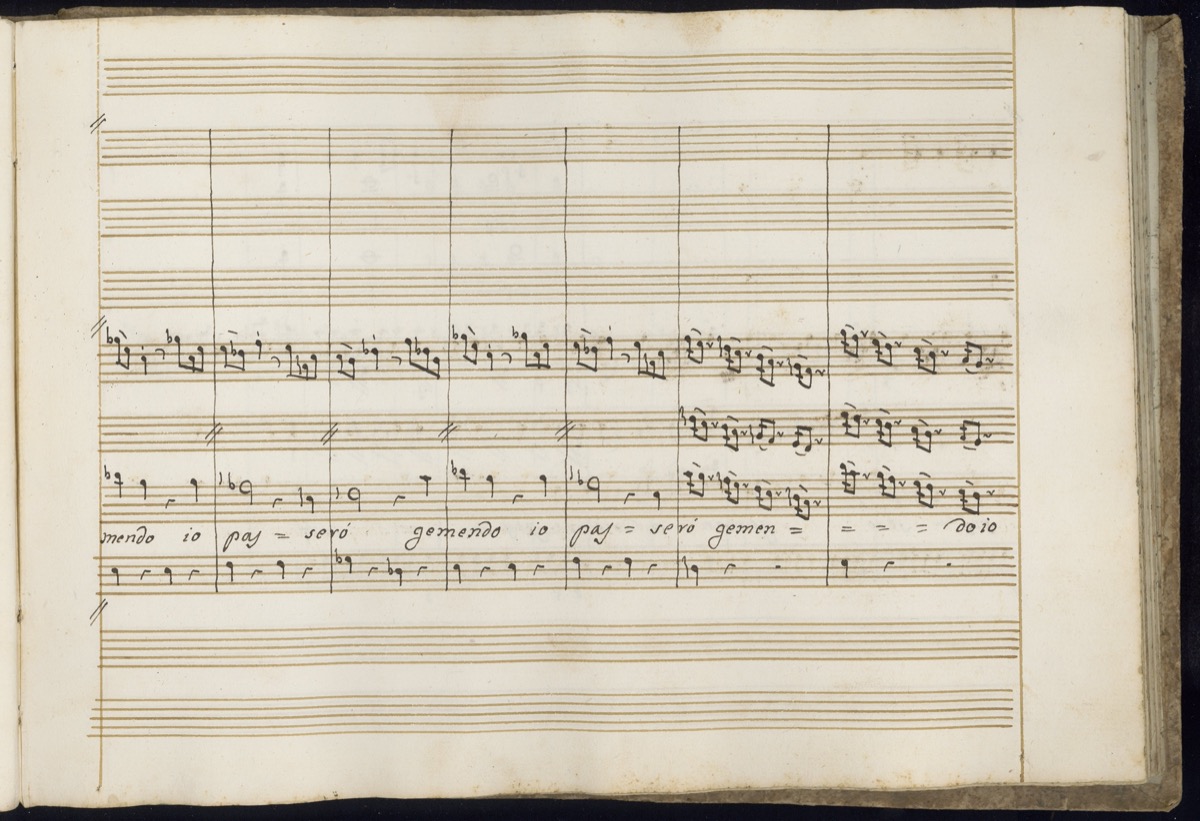 mendo io pas = seró gemendo io pas = seró gemen = = = = do io